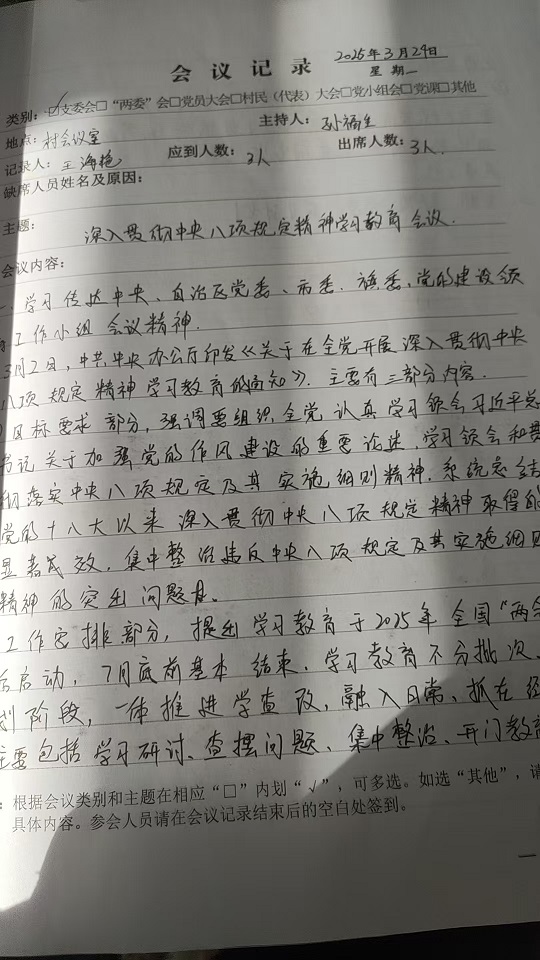 2025年3月24日
会议记录
星期一
类别：☑支委会□“两委”会□党员大会□村民（代表）大会□党小组会□党课□其他
地点：村会议室 主持人：孙福生
记录人：王海艳 应到人数：3人 出席人数：3人.
缺席人员姓名及原因：
主题：深入贯彻中央八项规定精神学习教育会议.
会议内容：
一、学习传达中央、自治区党委、市委、旗委，党的建设领
工作小组会议精神.
3月2日，中共中央办公厅印发《关于在全党开展深入贯彻中央
八项规定精神学习教育的通知》. 主要有三部分内容.
目标要求部分，强调要组织全党认真学习领会习近平总
书记关于加强党的作风建设的重要论述，学习领会和贯
彻落实中央八项规定及其实施细则精神，系统总结
党的十八大以来深入贯彻中央八项规定精神取得的
显著成效，集中整治违反中央八项规定及其实施细则
精神的突出问题.
工作安排部分，提出学习教育于2025年全国“两会
后启动，7月底前基本结束，学习教育不分批次、
划阶段，一体推进学查改，融入日常、抓在经
主要包括学习研讨、查摆问题、集中整治、开门教育
：根据会议类别和主题在相应“□”内划“√”，可多选。如选“其他”，请
具体内容。参会人员请在会议记录结束后的空白处签到。